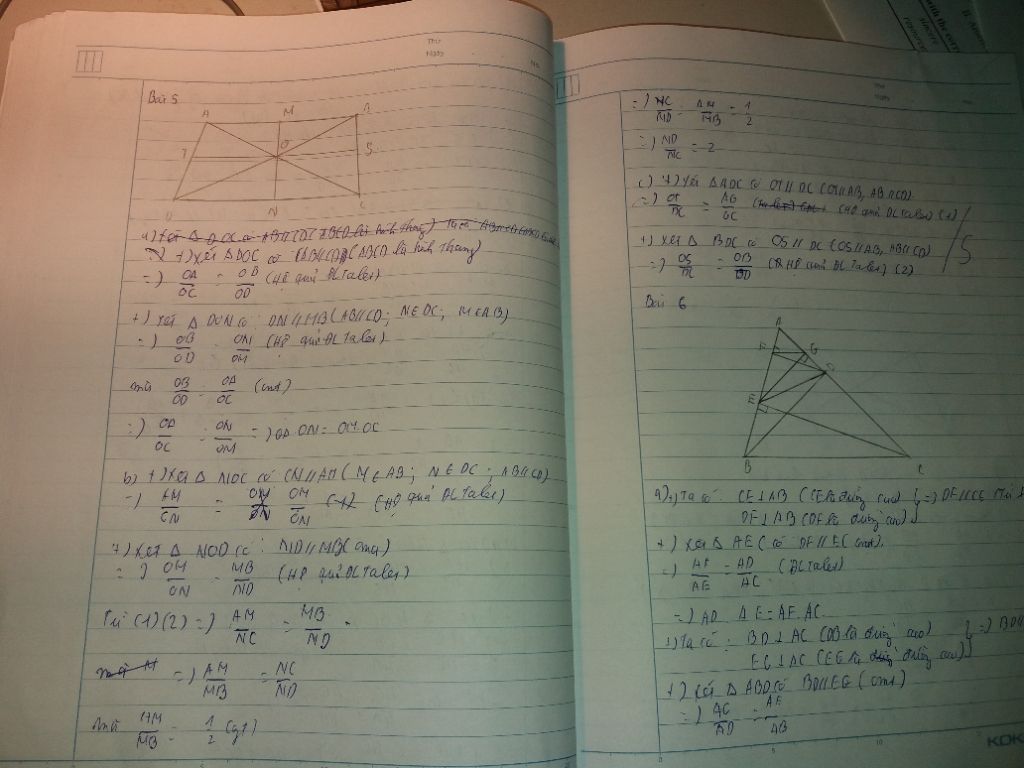 Thứ
Ngày
No.
Bài 5
A M B
O
S
D N C
+) Xét ΔDOC có AB//CD (ABCD là hình thang)
=) OA/OC = OB/OD (HQ quả ĐL Talet)
+) Xét Δ DON có: DN//MB (AB//CD; N∈DC; M∈AB)
=) OB/OD = ON/OM (HQ quả ĐL Talet)
mà OB/OD = OA/OC (cmt)
=) OA/OC = ON/OM =) OA ON = OM OC
b) +) Xét Δ NOC có CN//AM (M∈AB; N∈DC; AB//CD)
=) AM/CN = OM/ON (HQ quả ĐL Talet)
+) Xét Δ NOD có: ND//MB (cmt)
=) OM/ON = MB/ND (HQ quả ĐL Talet)
Từ (1)(2) =) AM/NC = MB/ND
=) AM/MB = NC/ND
mà AM/MB = 1/2 (gt)
Thứ
Ngày
=) NC/ND = AM/MB = 1/2
=) ND/NC = 2
c) +) Xét ΔADC có OI//DC (OI//AB, AB//CD)
=) OI/DC = AO/OC (HQ quả ĐL Talet) (1)
+) Xét Δ BDC có OS//DC (OS//AB, AB//CD)
=) OS/DC = OB/BD (HQ quả ĐL Talet) (2)
Bài 6
A
F G
D
E
B C
a) +) Ta có: CE⊥AB (CE là đường cao) } =) DF//CE
DF⊥AB (DF là đường cao)
+) Xét Δ AEC có DF//EC (cmt).
=) AF/AE = AD/AC (ĐL Talet)
=) AD AE = AF AC
+) Ta có: BD⊥AC (DB là đường cao) } =) BD//
EG⊥AC (EG là đường cao)
+) Xét Δ ABD có BD//EG (cmt)
=) AG/AD = AE/AB
KOK